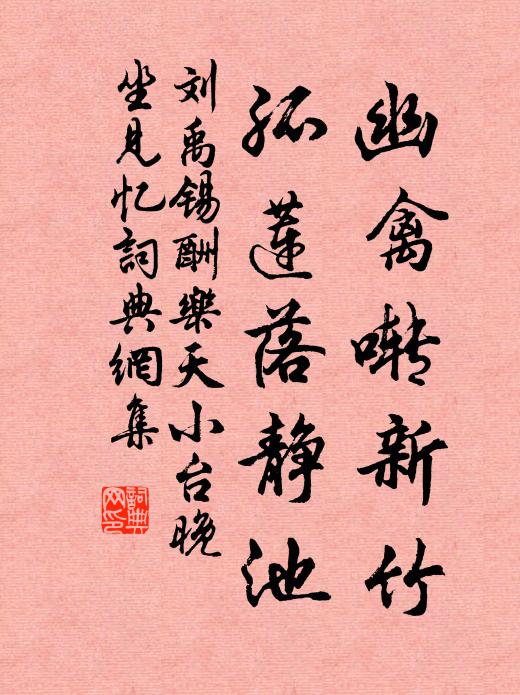 幽禽啭新竹
孤莲落静池
刘禹锡酬樂天小台晚
坐见忆詞典網集
詞典
网印